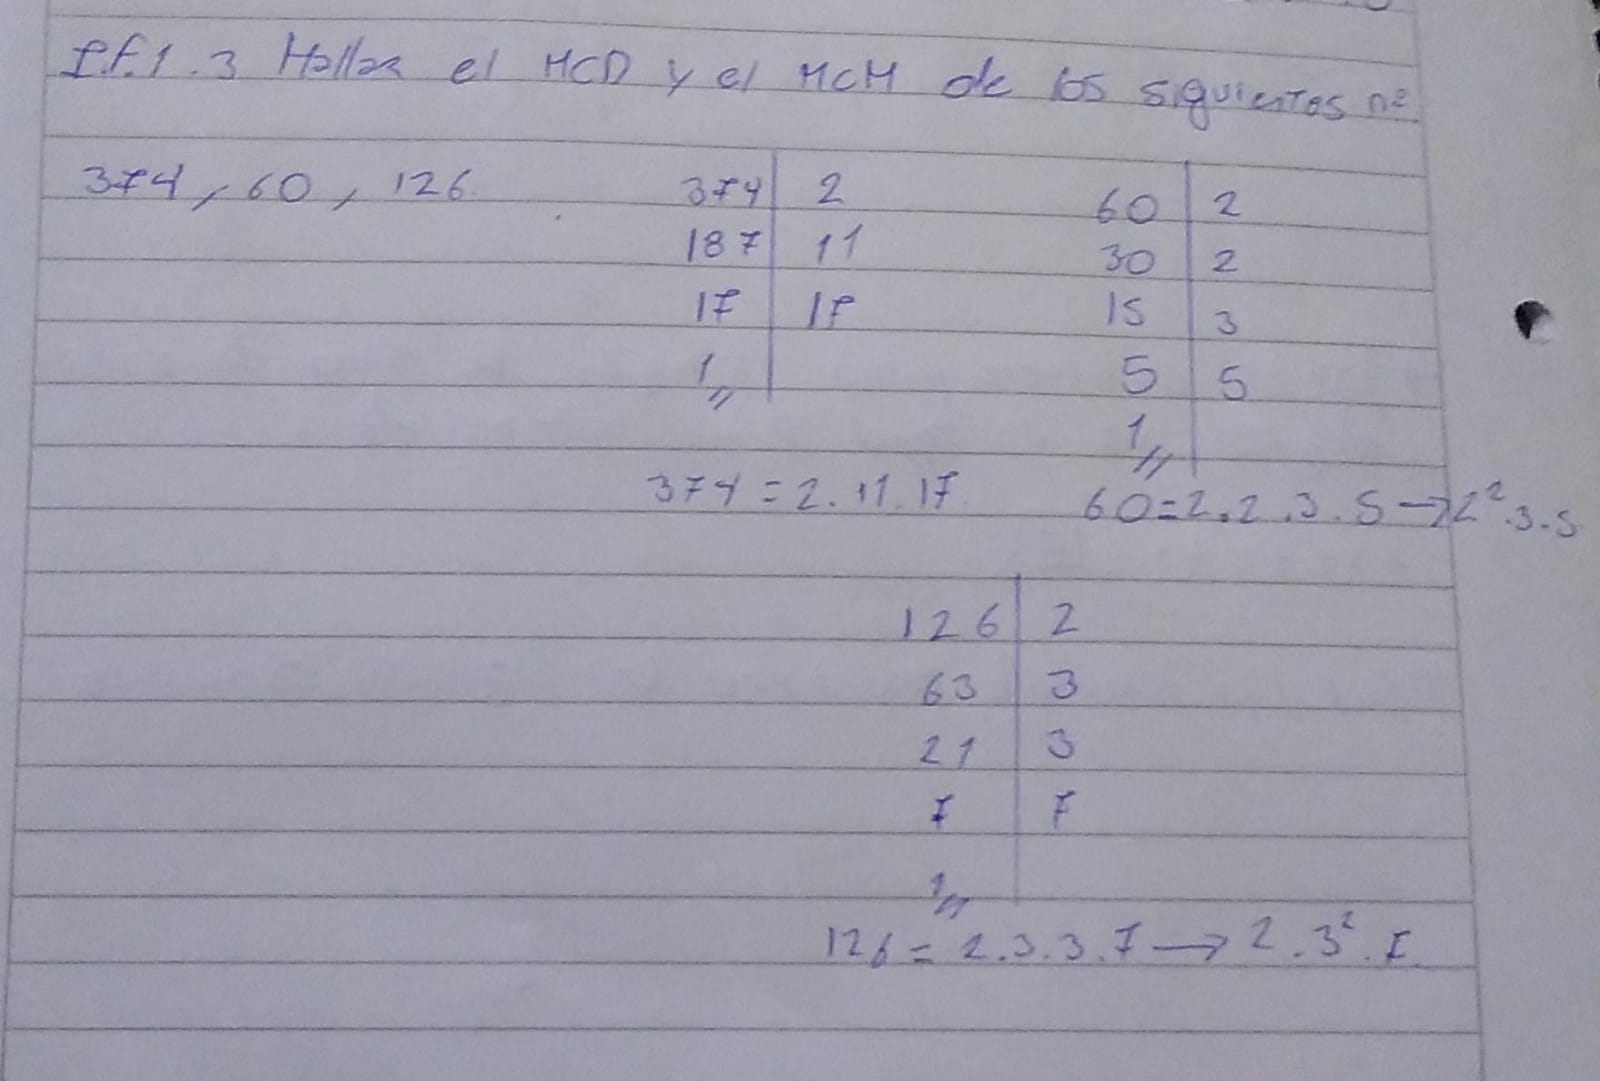 P.f.1.3 Hallar el MCD y el MCM de los siguientes nº
374, 60, 126.
374 | 2
187 | 11
17 | 17
1 //
374 = 2.11.17.
60 | 2
30 | 2
15 | 3
5 | 5
1 //
60 = 2.2.3.5 → 2².3.5
126 | 2
63 | 3
21 | 3
7 | 7
1 //
126 = 2.3.3.7 → 2.3².7.